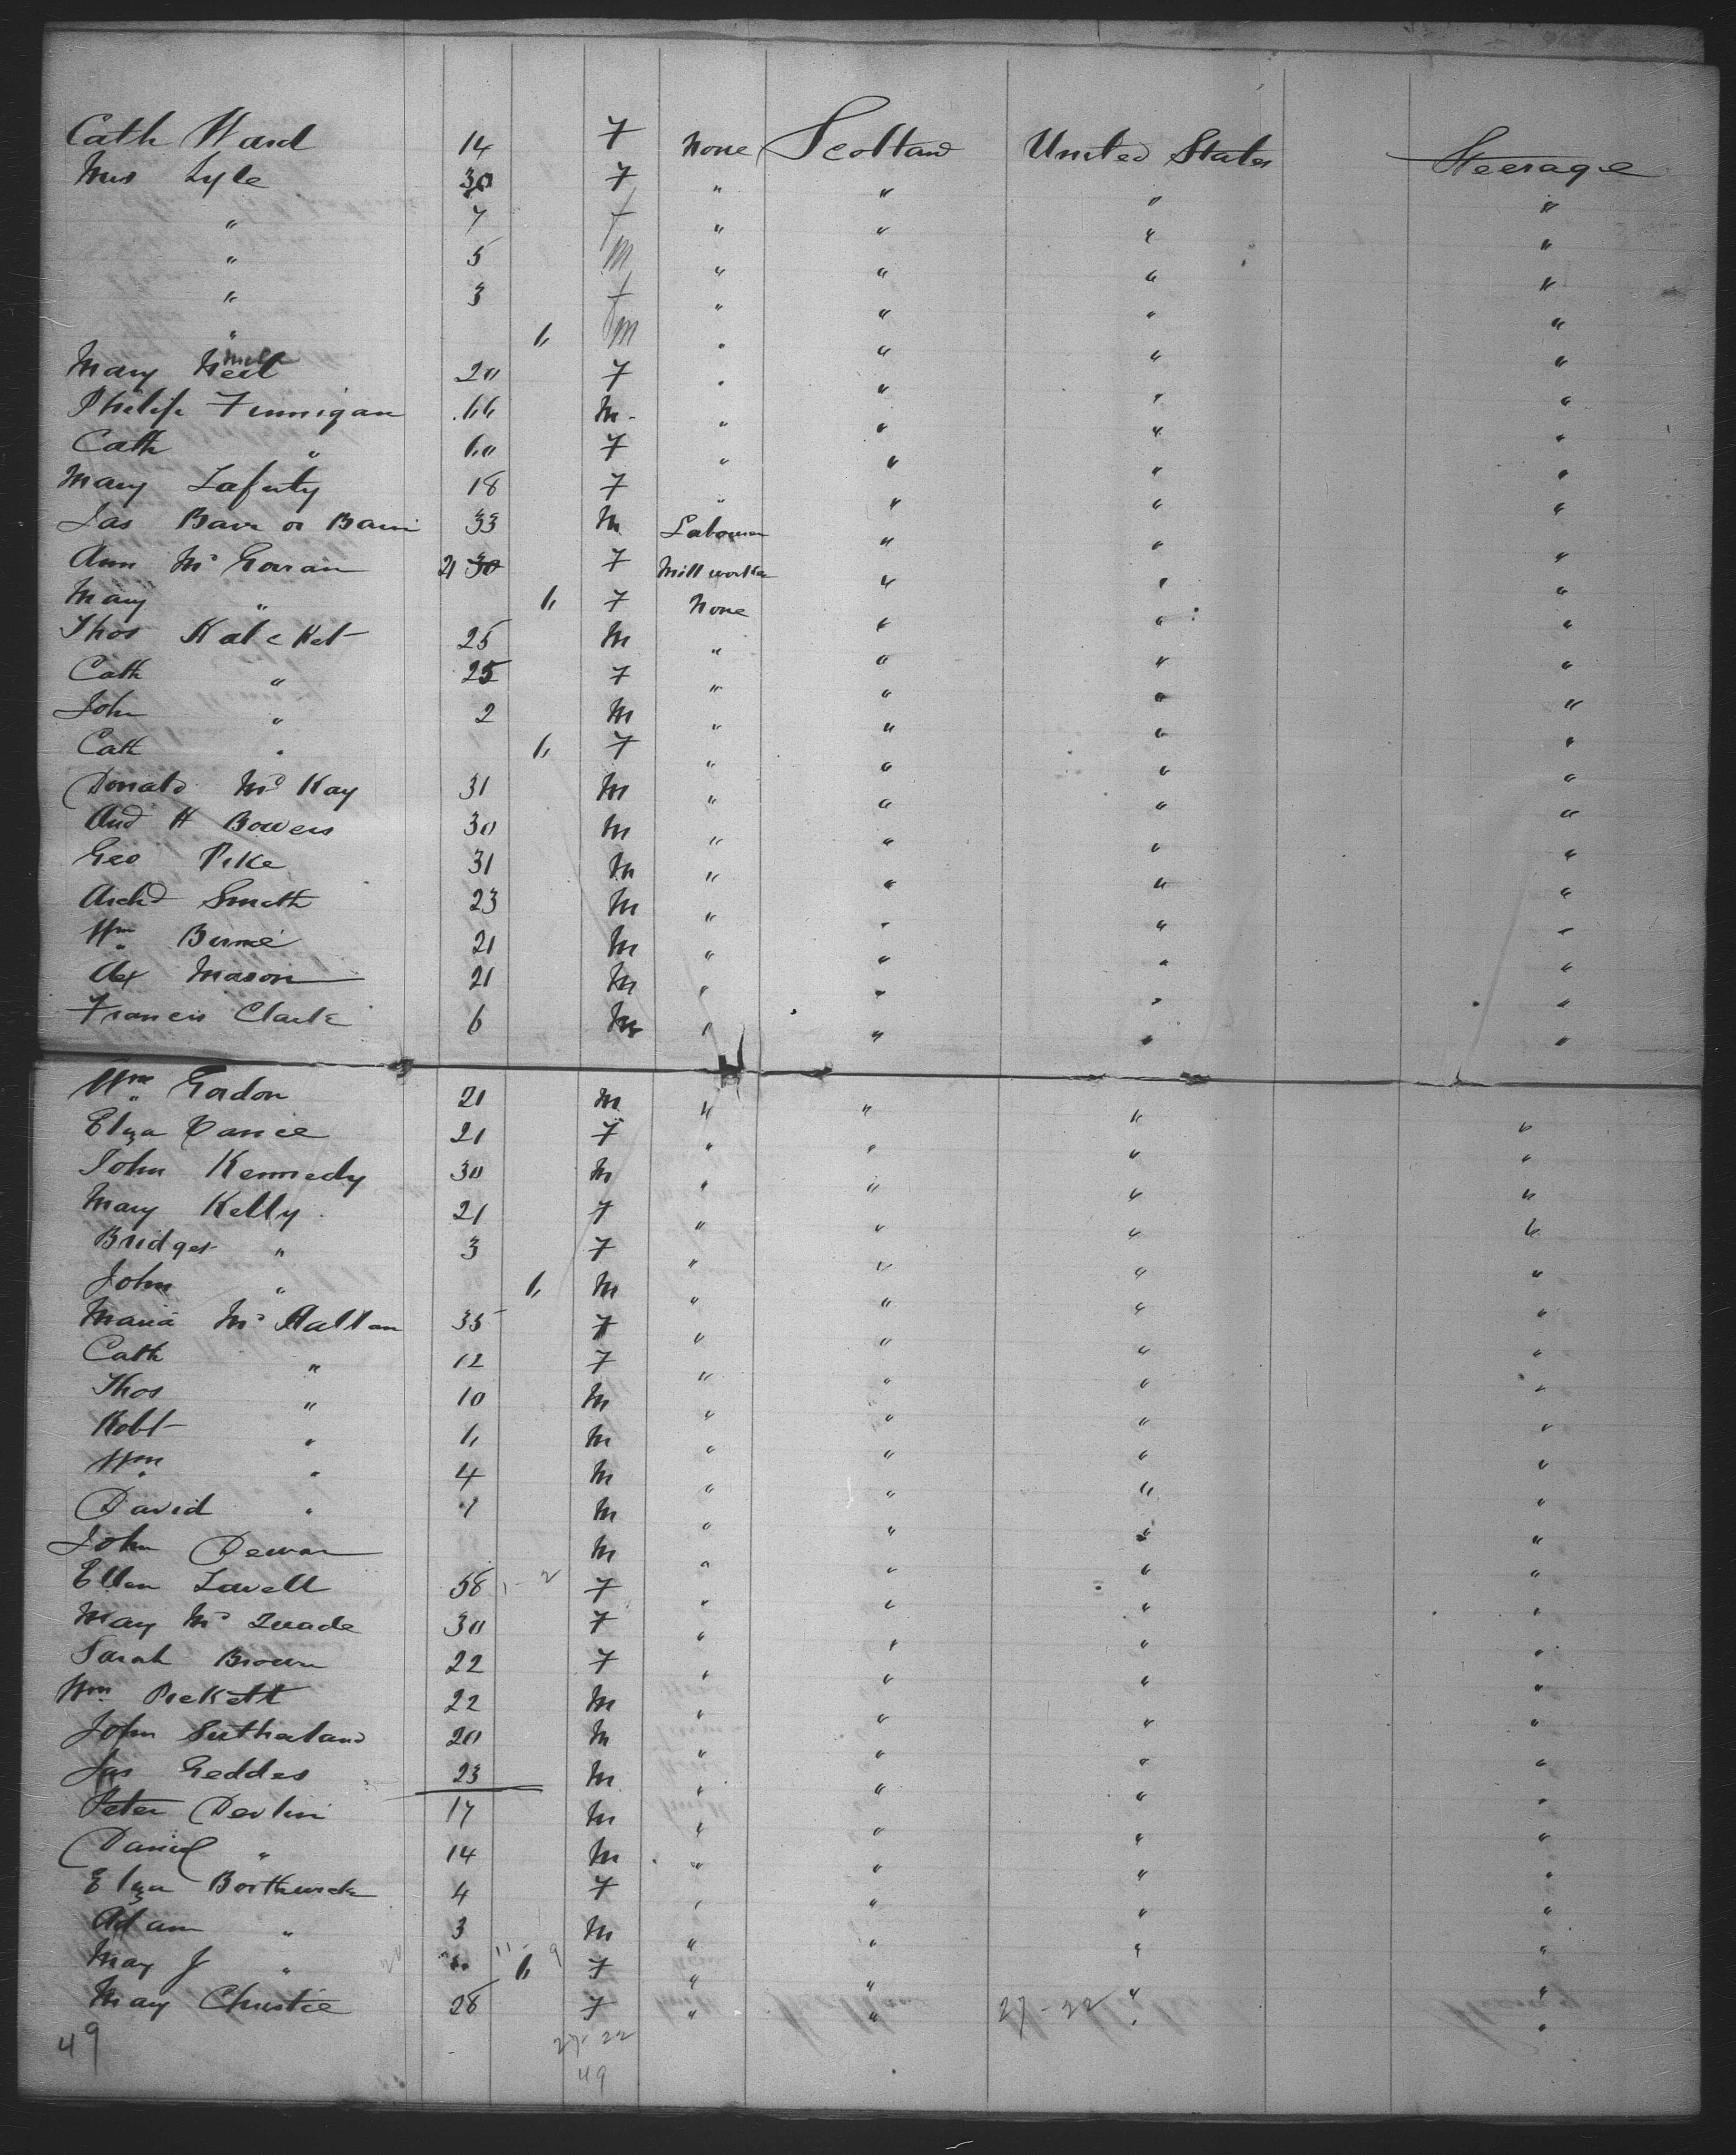 Cath Ward 14 F None Scotland United States Steerage
Mrs Lyle 30 F " " " "
" 7 f " " " "
" 5 m " " " "
" 3 f " " " "
" 6 m " " " "
Mary Neil 20 F " " " "
Philip Finnigan 66 M " " " "
Cath " 60 F " " " "
Mary Laferty 18 F " " " "
Jas Barr or Barrie 33 M Labourer " " "
Ann Mc Gowan 21 30 F Mill worker " " "
Mary " 6 F None " " "
Thos 25 M " " " "
Cath " 25 F " " " "
John " 2 M " " " "
Cath " 6 F " " " "
Donald McKay 31 M " " " "
And H Bowers 30 M " " " "
Geo Pike 31 M " " " "
Archd Smith 23 M " " " "
Wm Birnie 21 M " " " "
Alex Mason 21 M " " " "
Francis Clark 6 M " " " "
Wm Gordon 21 M " " " "
Eliza Vance 21 F " " " "
John Kennedy 30 M " " " "
Mary Kelly 21 F " " " "
Bridget " 3 F " " " "
John " 6 M " " " "
Maria Mc Hallan 35 F " " " "
Cath " 12 F " " " "
Thos " 10 M " " " "
Robt " 6 M " " " "
Wm " 4 M " " " "
David " 1 M " " " "
John Dewar M " " " "
Ellen Lavell 58 F " " " "
Mary Mc Quade 30 F " " " "
Sarah Brown 22 F " " " "
Wm Pickett 22 M " " " "
John Sutherland 20 M " " " "
Jas Geddes 23 M " " " "
Peter Devlin 17 M " " " "
Daniel " 14 M " " " "
Eliza Borthwick 4 F " " " "
Adam " 3 M " " " "
Mary J " 6 F " " " "
Mary Christie 28 F " " 27-22 " "
49 27-22
49